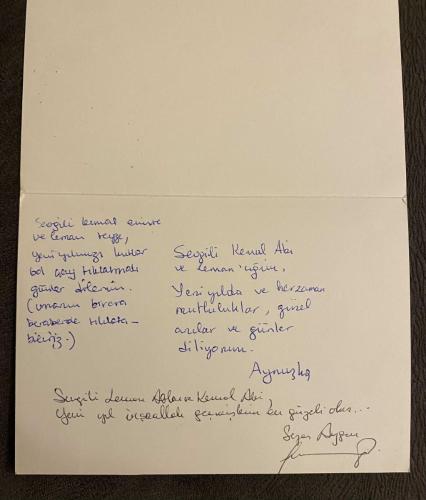 Sevgili Kemal enişte
ve Leman teyze,
yeni yılınızı kutlar
bol çay tıklatmalı
günler dilerim.
(umarım birara
beraberde tıklata-
biliriz.)
Sevgili Kemal Abi
ve Leman'cığım,
Yeni yılda ve herzaman
mutluluklar, güzel
anılar ve günler
diliyorum.
Aynuşka
Sevgili Leman Abla ve Kemal Abi,
Yeni yıl inşaallah geçmişlerin en güzeli olur...
Sezer Aygen